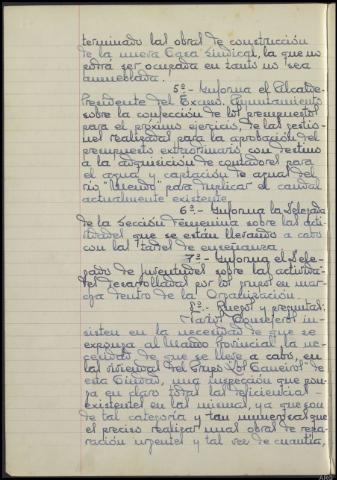 terminado las obras de construcción
de la nueva Casa Sindical, la que no
podrá ser ocupada en tanto no sea
amueblada.
5º.- Informa el Alcalde-
Presidente del Excmo. Ayuntamiento
sobre la confección de los presupuestos
para el próximo ejercicio, de las gestio-
nes realizadas para la aprobación del
presupuesto extraordinario con destino
a la adquisición de contadores para
el agua y captación de aguas del
río para duplicar el caudal
actualmente existente.
6º.- Informa la Delegada
de la Sección Femenina sobre las acti-
vidades que se están llevando a cabo
con las tareas de enseñanza.
7º.- Informa el Dele-
gado de Juventudes sobre las activida-
des desarrolladas por los grupos en mar-
cha dentro de la Organización.
8º.- Ruegos y preguntas.
Varios Consejeros in-
sisten en la necesidad de que se
exponga al Mando Provincial la ne-
cesidad de que se lleve a cabo, en
las viviendas del Grupo "Los Caneiros" de
esta Ciudad, una inspección que pon-
ga en claro todas las deficiencias
existentes en las mismas, ya que son
de tal categoría y tan numerosas que
es preciso realizar unas obras de repa-
ración urgentes y tal vez de cuantía,